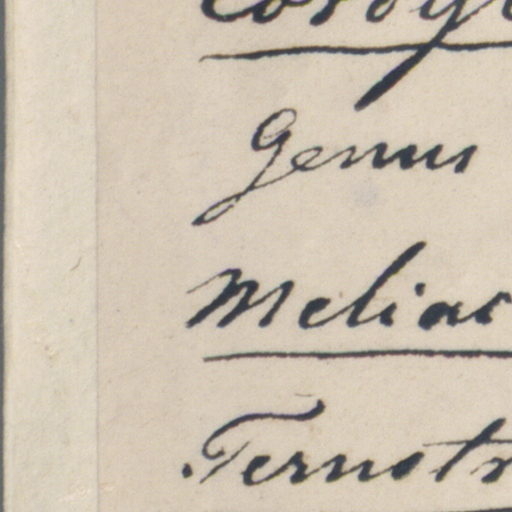 Genus
Meliac
Ternstr